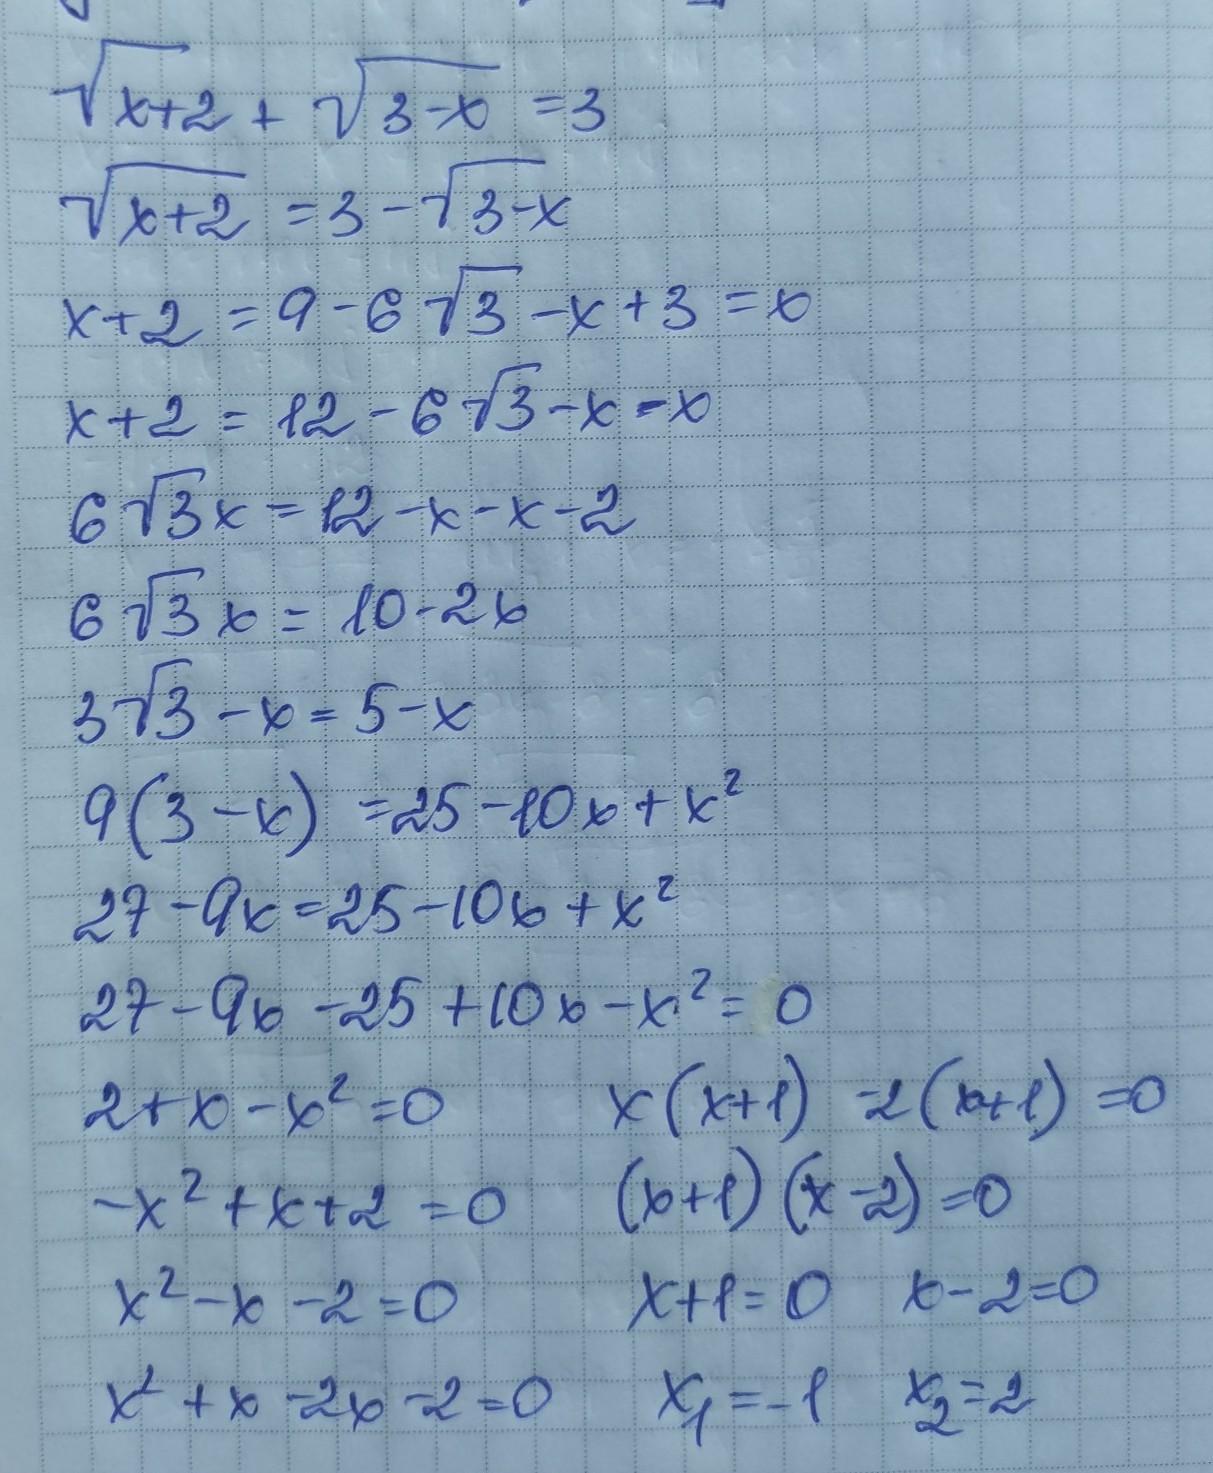 √x+2 + √3-x = 3
√x+2 = 3 - √3-x
x+2 = 9 - 6√3 - x + 3 = x
x+2 = 12 - 6√3 - x - x
6√3x = 12 - x - x - 2
6√3x = 10 - 2x
3√3 - x = 5 - x
9(3 - x) = 25 - 10x + x²
27 - 9x = 25 - 10x + x²
27 - 9x - 25 + 10x - x² = 0
2 + x - x² = 0
-x² + x + 2 = 0
x² - x - 2 = 0
x² + x - 2x - 2 = 0
x(x+1) - 2(x+1) = 0
(x+1)(x-2) = 0
x+1 = 0 x - 2 = 0
x₁ = -1 x₂ = 2